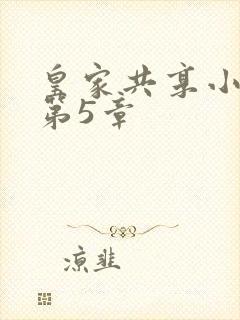 皇家共享小
第5章
凉韭